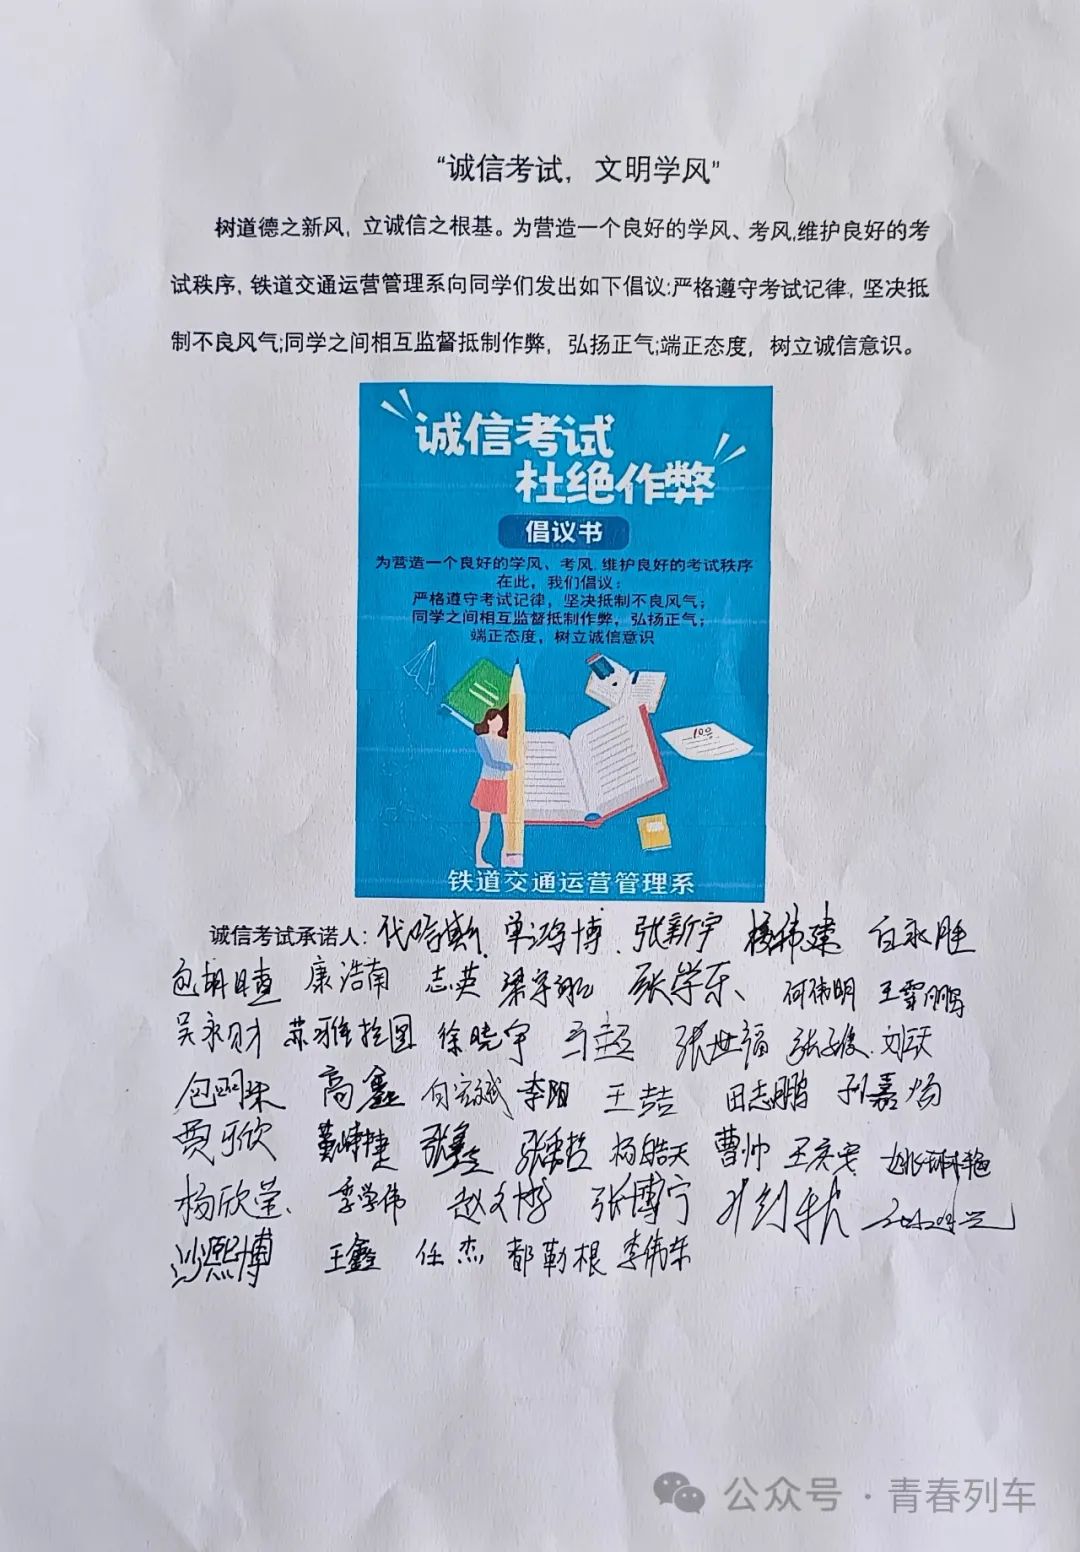 “诚信考试，文明学风”
树道德之新风，立诚信之根基。为营造一个良好的学风、考风,维护良好的考
试秩序, 铁道交通运营管理系向同学们发出如下倡议:严格遵守考试记律, 坚决抵
制不良风气;同学之间相互监督抵制作弊，弘扬正气;端正态度，树立诚信意识。
诚信考试
杜绝作弊
倡议书
为营造一个良好的学风、考风,维护良好的考试秩序
在此，我们倡议：
严格遵守考试记律，坚决抵制不良风气；
同学之间相互监督抵制作弊，弘扬正气；
端正态度，树立诚信意识
100
铁道交通运营管理系
诚信考试承诺人: 单鸿博 张新宇 杨伟建 白永胜
康浩南 志英 张学东、 何伟明 王雪鹏
吴永财 苏雅拉图 徐晓宇 马超 张世福 刘跃
高鑫 李阳 王喆 田志鹏
贾可欣 张鑫 杨皓天 曹帅
杨欣莹、 李学伟 赵文博 张博宁
王鑫 任杰 都勒根 李伟东
公众号 · 青春列车